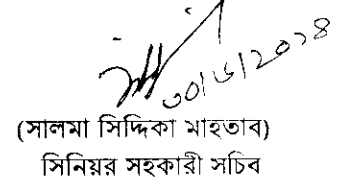 ৩০/৬/২০১৪
(সালমা সিদ্দিকা মাহতাব)
সিনিয়র সহকারী সচিব